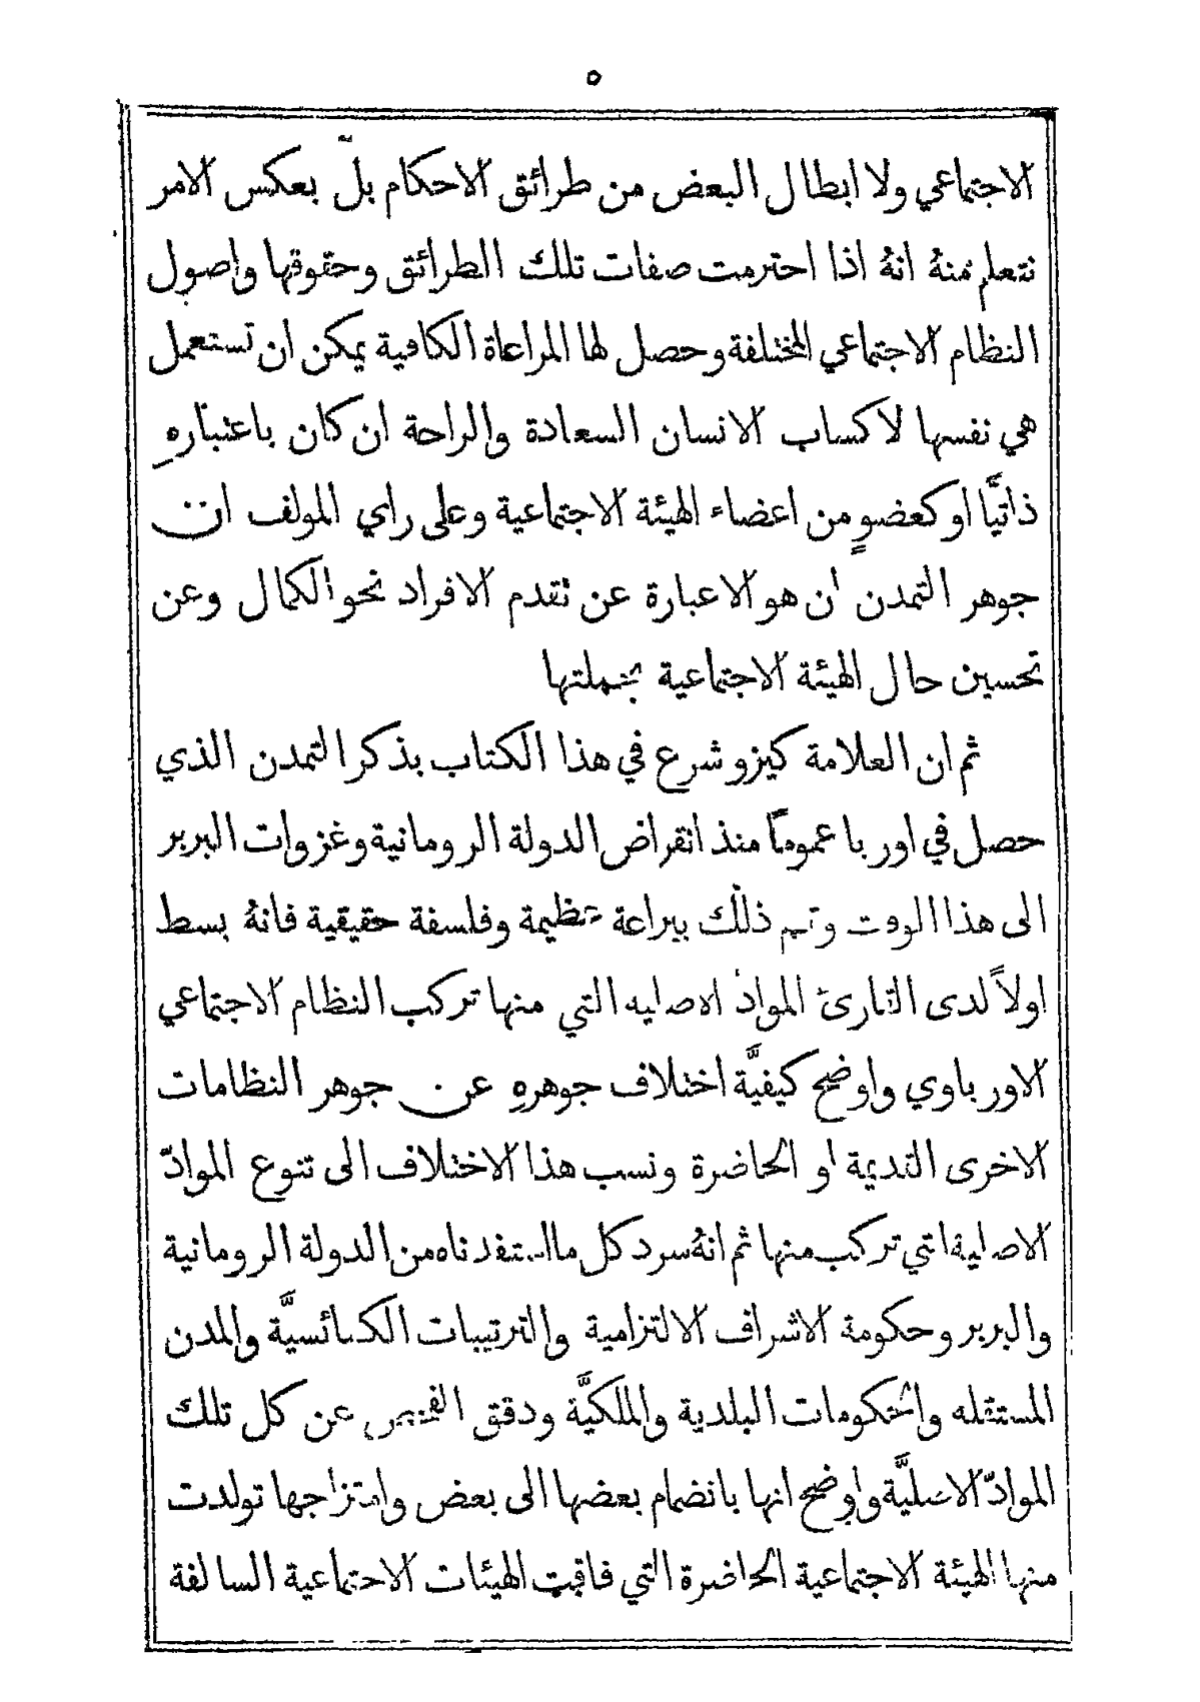 ٥
الاجتماعي ولا ابطال البعض من طرائق الاحكام بل بعكس الامر
نتعلم منهُ انهُ اذا احترمت صفات تلك الطرائق وحقوقها واصول
النظام الاجتماعي المختلفة وحصل لها المراعاة الكافية يمكن ان تستعمل
هي نفسها لاكساب الانسان السعادة والراحة ان كان باعتبارهِ
ذاتيًّا او كعضوٍ من اعضاء الهيئة الاجتماعية وعلى راي المولف ان
جوهر التمدن ان هو الا عبارة عن تقدم الافراد نحو الكمال وعن
تحسين حال الهيئة الاجتماعية بجملتها
ثم ان العلامة كيزو شرع في هذا الكتاب بذكر التمدن الذي
حصل في اوربا عموماً منذ انقراض الدولة الرومانية وغزوات البربر
الى هذا الوقت وتمم ذلك ببراعة عظيمة وفلسفة حقيقية فانهُ بسط
اولاً لدى القارئ المواد الاصليه التي منها تركب النظام الاجتماعي
الاورباوي واوضح كيفيَّة اختلاف جوهرهِ عن جوهر النظامات
الاخرى القديمة او الحاضرة ونسب هذا الاختلاف الى تنوع الموادّ
الاصلية التي تركب منها ثم انهُ سرد كل ما استفدناه من الدولة الرومانية
والبربر وحكومة الاشراف الالتزامية والترتيبات الكنائسيَّة والمدن
المستقله والحكومات البلدية والملكيَّة ودقق الفحص عن كل تلك
الموادّ الاصليَّة واوضح انها بانضمام بعضها الى بعض وامتزاجها تولدت
منها الهيئة الاجتماعية الحاضرة التي فاقت الهيئات الاجتماعية السالفة